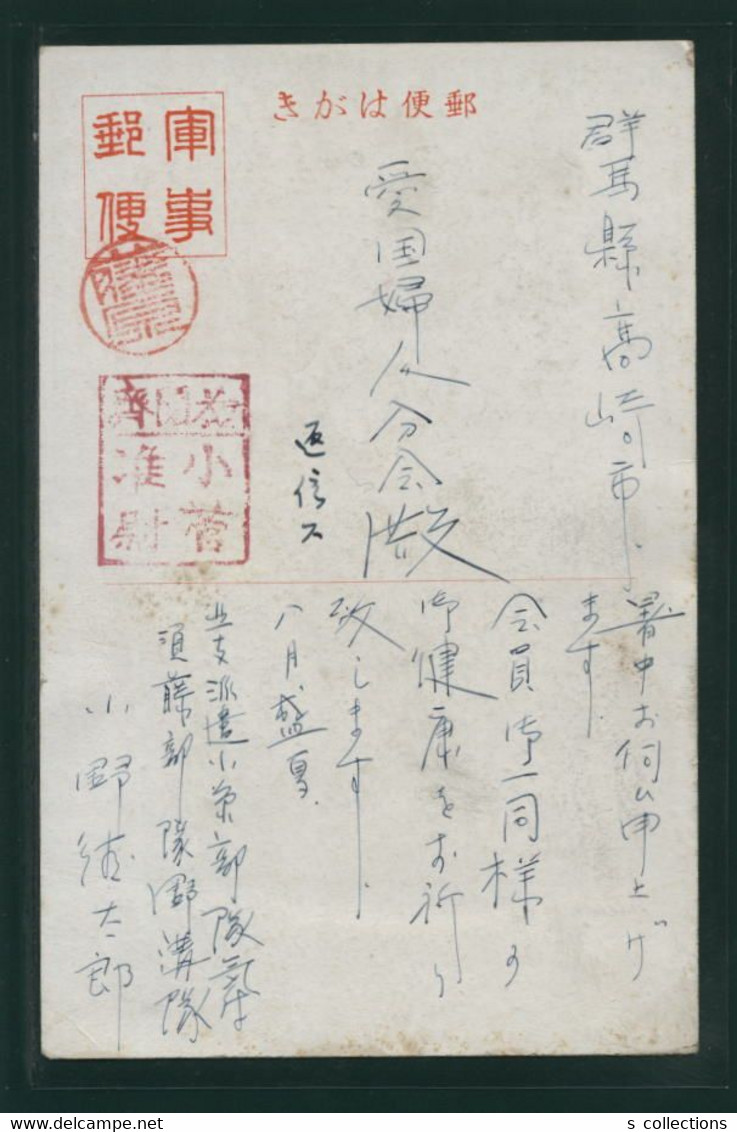 郵便はがき
軍事
郵便
群馬縣高崎市
愛国婦人分会殿
返信ス
検閲済
小菅
准尉
暑中お伺ひ申上げ
ます.
会員御一同様の
御健康をお祈り
致します.
八月盛夏.
北支派遣小栗部隊氣付
須藤部隊溝隊
小野徳太郎
s collections